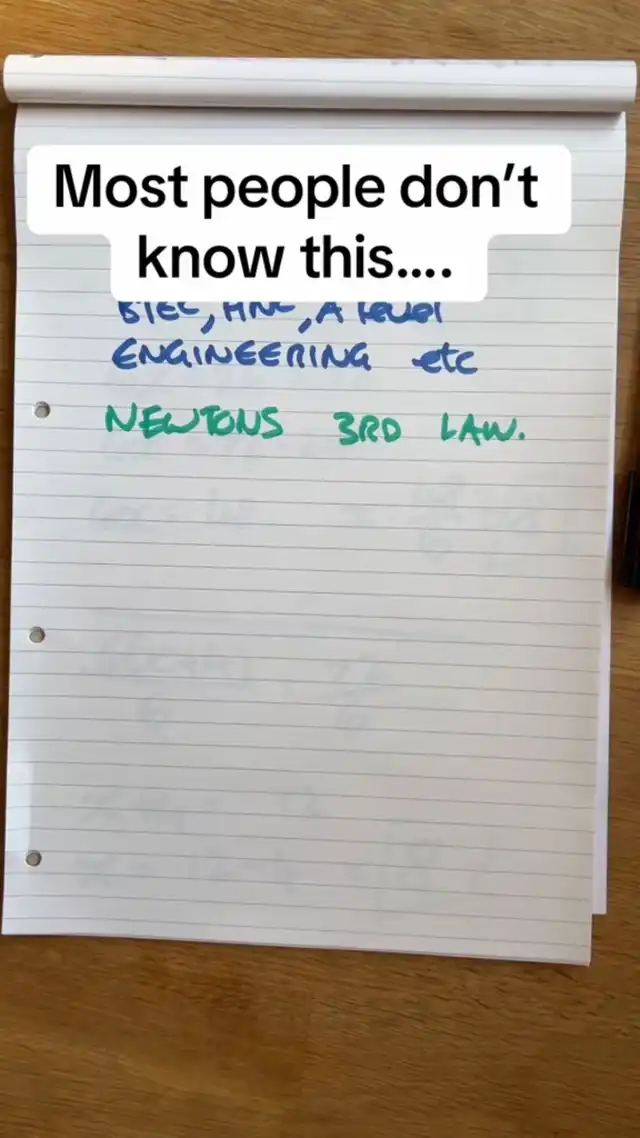 Most people don’t
know this....
BTEC, HNC, A level
ENGINEERING etc
NEWTONS 3RD LAW.